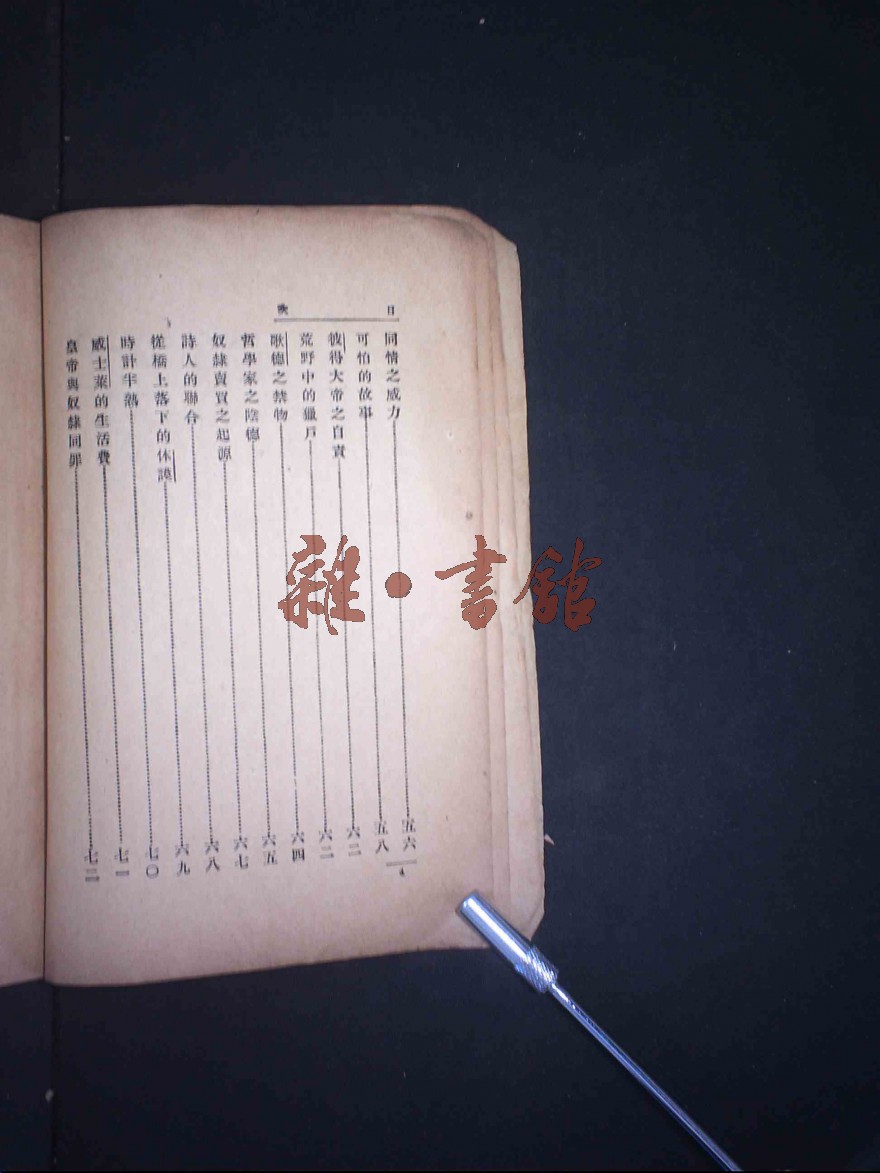 目次
同情之威力……五六
可怕的故事……五八
彼得大帝之自責……六二
荒野中的獵戶……六二
歌德之禁物……六四
哲學家之陰德……六五
奴隸賣買之起源……六七
詩人的聯合……六八
從橋上落下的休謨……六九
時計半熟……七〇
威士萊的生活費……七一
皇帝與奴隸同……七二
4
雜·書館